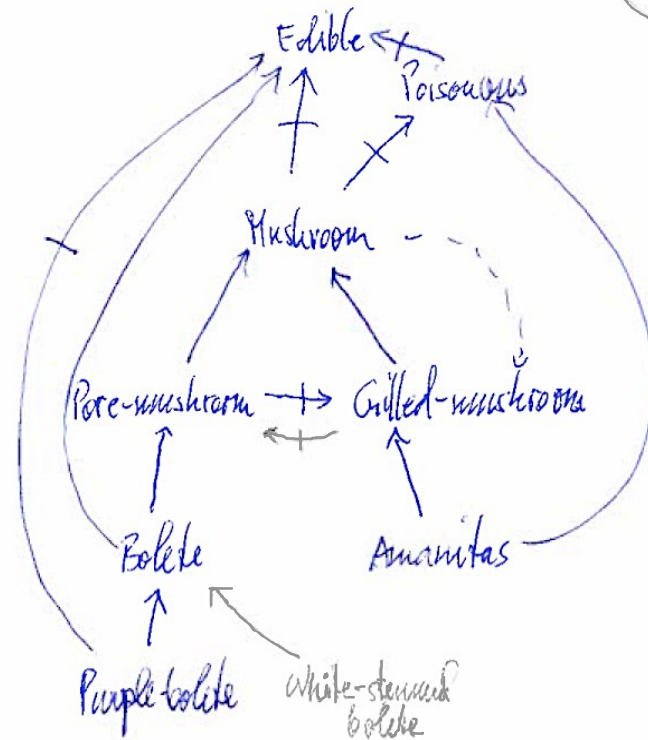 Edible
Poisonous
Mushroom
Pore-mushroom
Gilled-mushroom
Bolete
Amanitas
Purple-bolete
White-stemmed
bolete